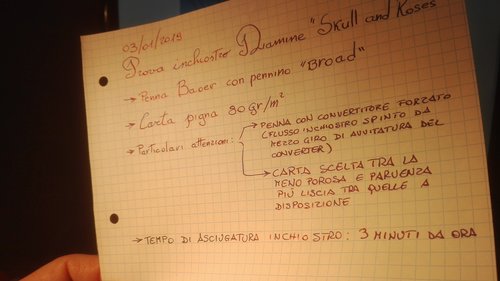 03/01/2019
Prova inchiostro Diamine "Skull and Roses"
→ Penna Bauer con pennino "Broad"
→ Carta Pigna 80 gr/m²
→ Particolari attenzioni:
→ PENNA CON CONVERTITORE FORZATO
(FLUSSO INCHIOSTRO SPINTO DA
MEZZO GIRO DI AVVITATURA DEL
CONVERTER)
→ CARTA SCELTA TRA LA
MENO POROSA E PARVENZA
PIÙ LISCIA TRA QUELLE A
DISPOSIZIONE
→ TEMPO DI ASCIUGATURA INCHIOSTRO: 3 MINUTI DA ORA